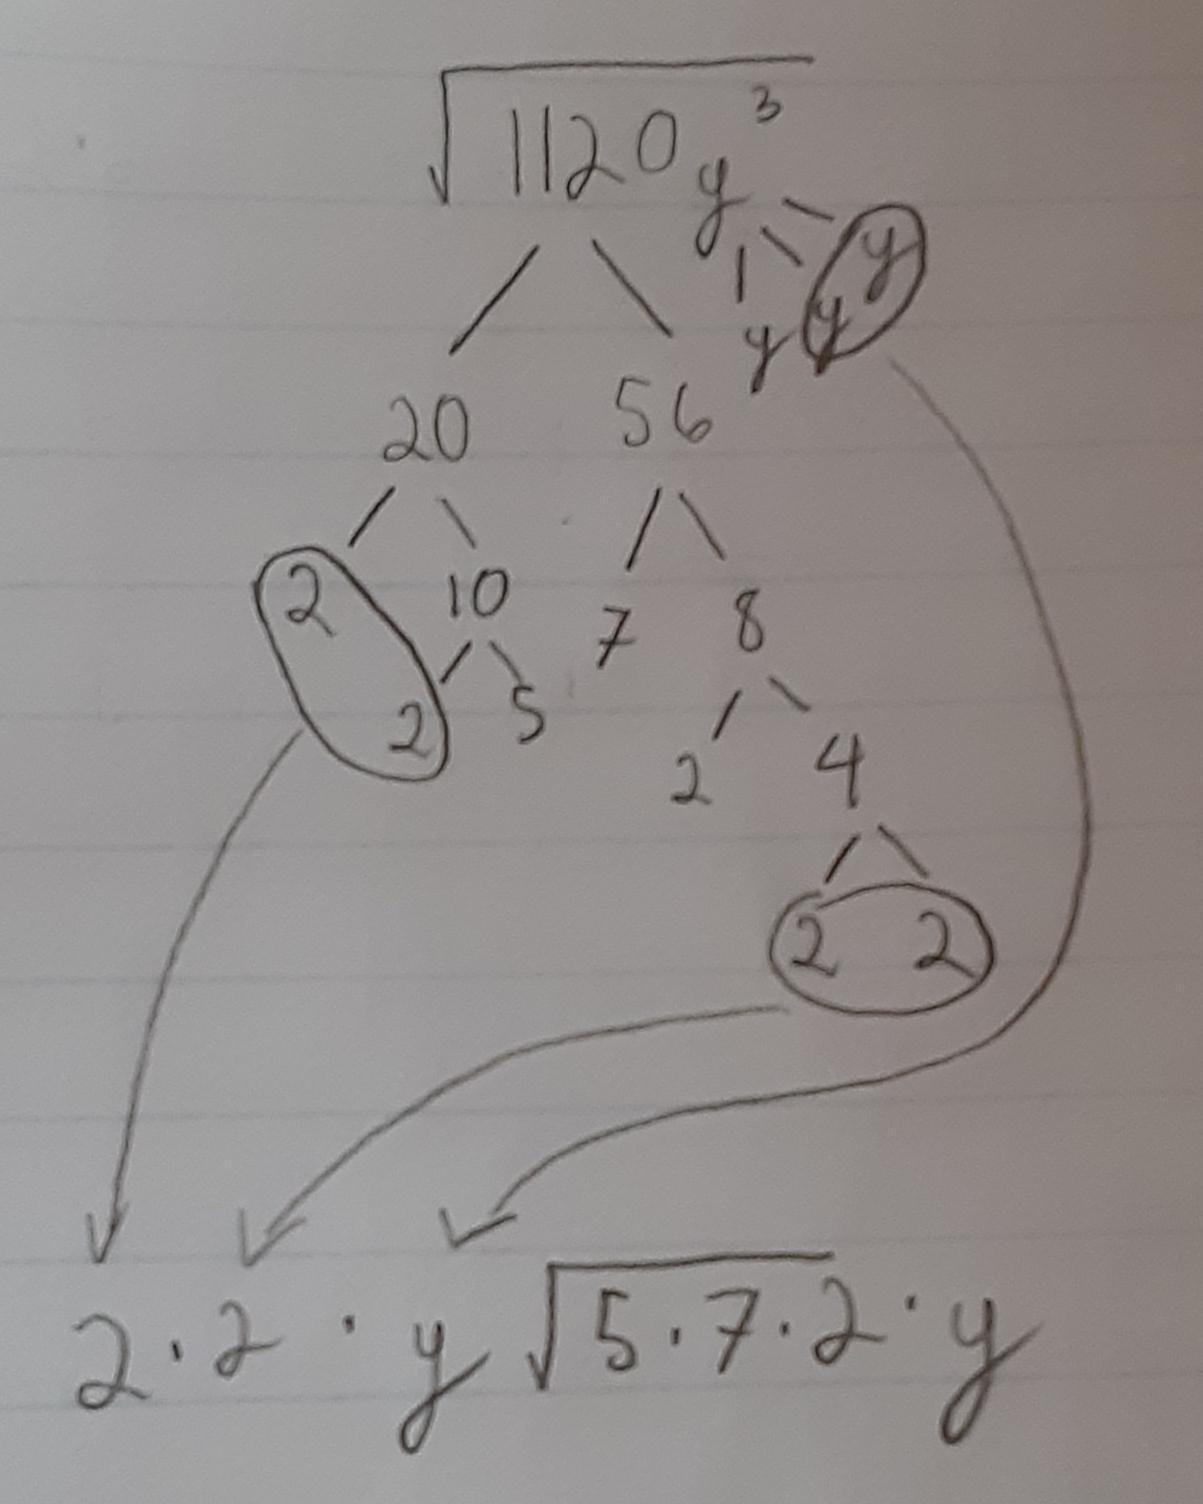 √1120y³
y
y y
20 56
2 10 7 8
2 5 2 4
2 2
2 · 2 · y √5 · 7 · 2 · y